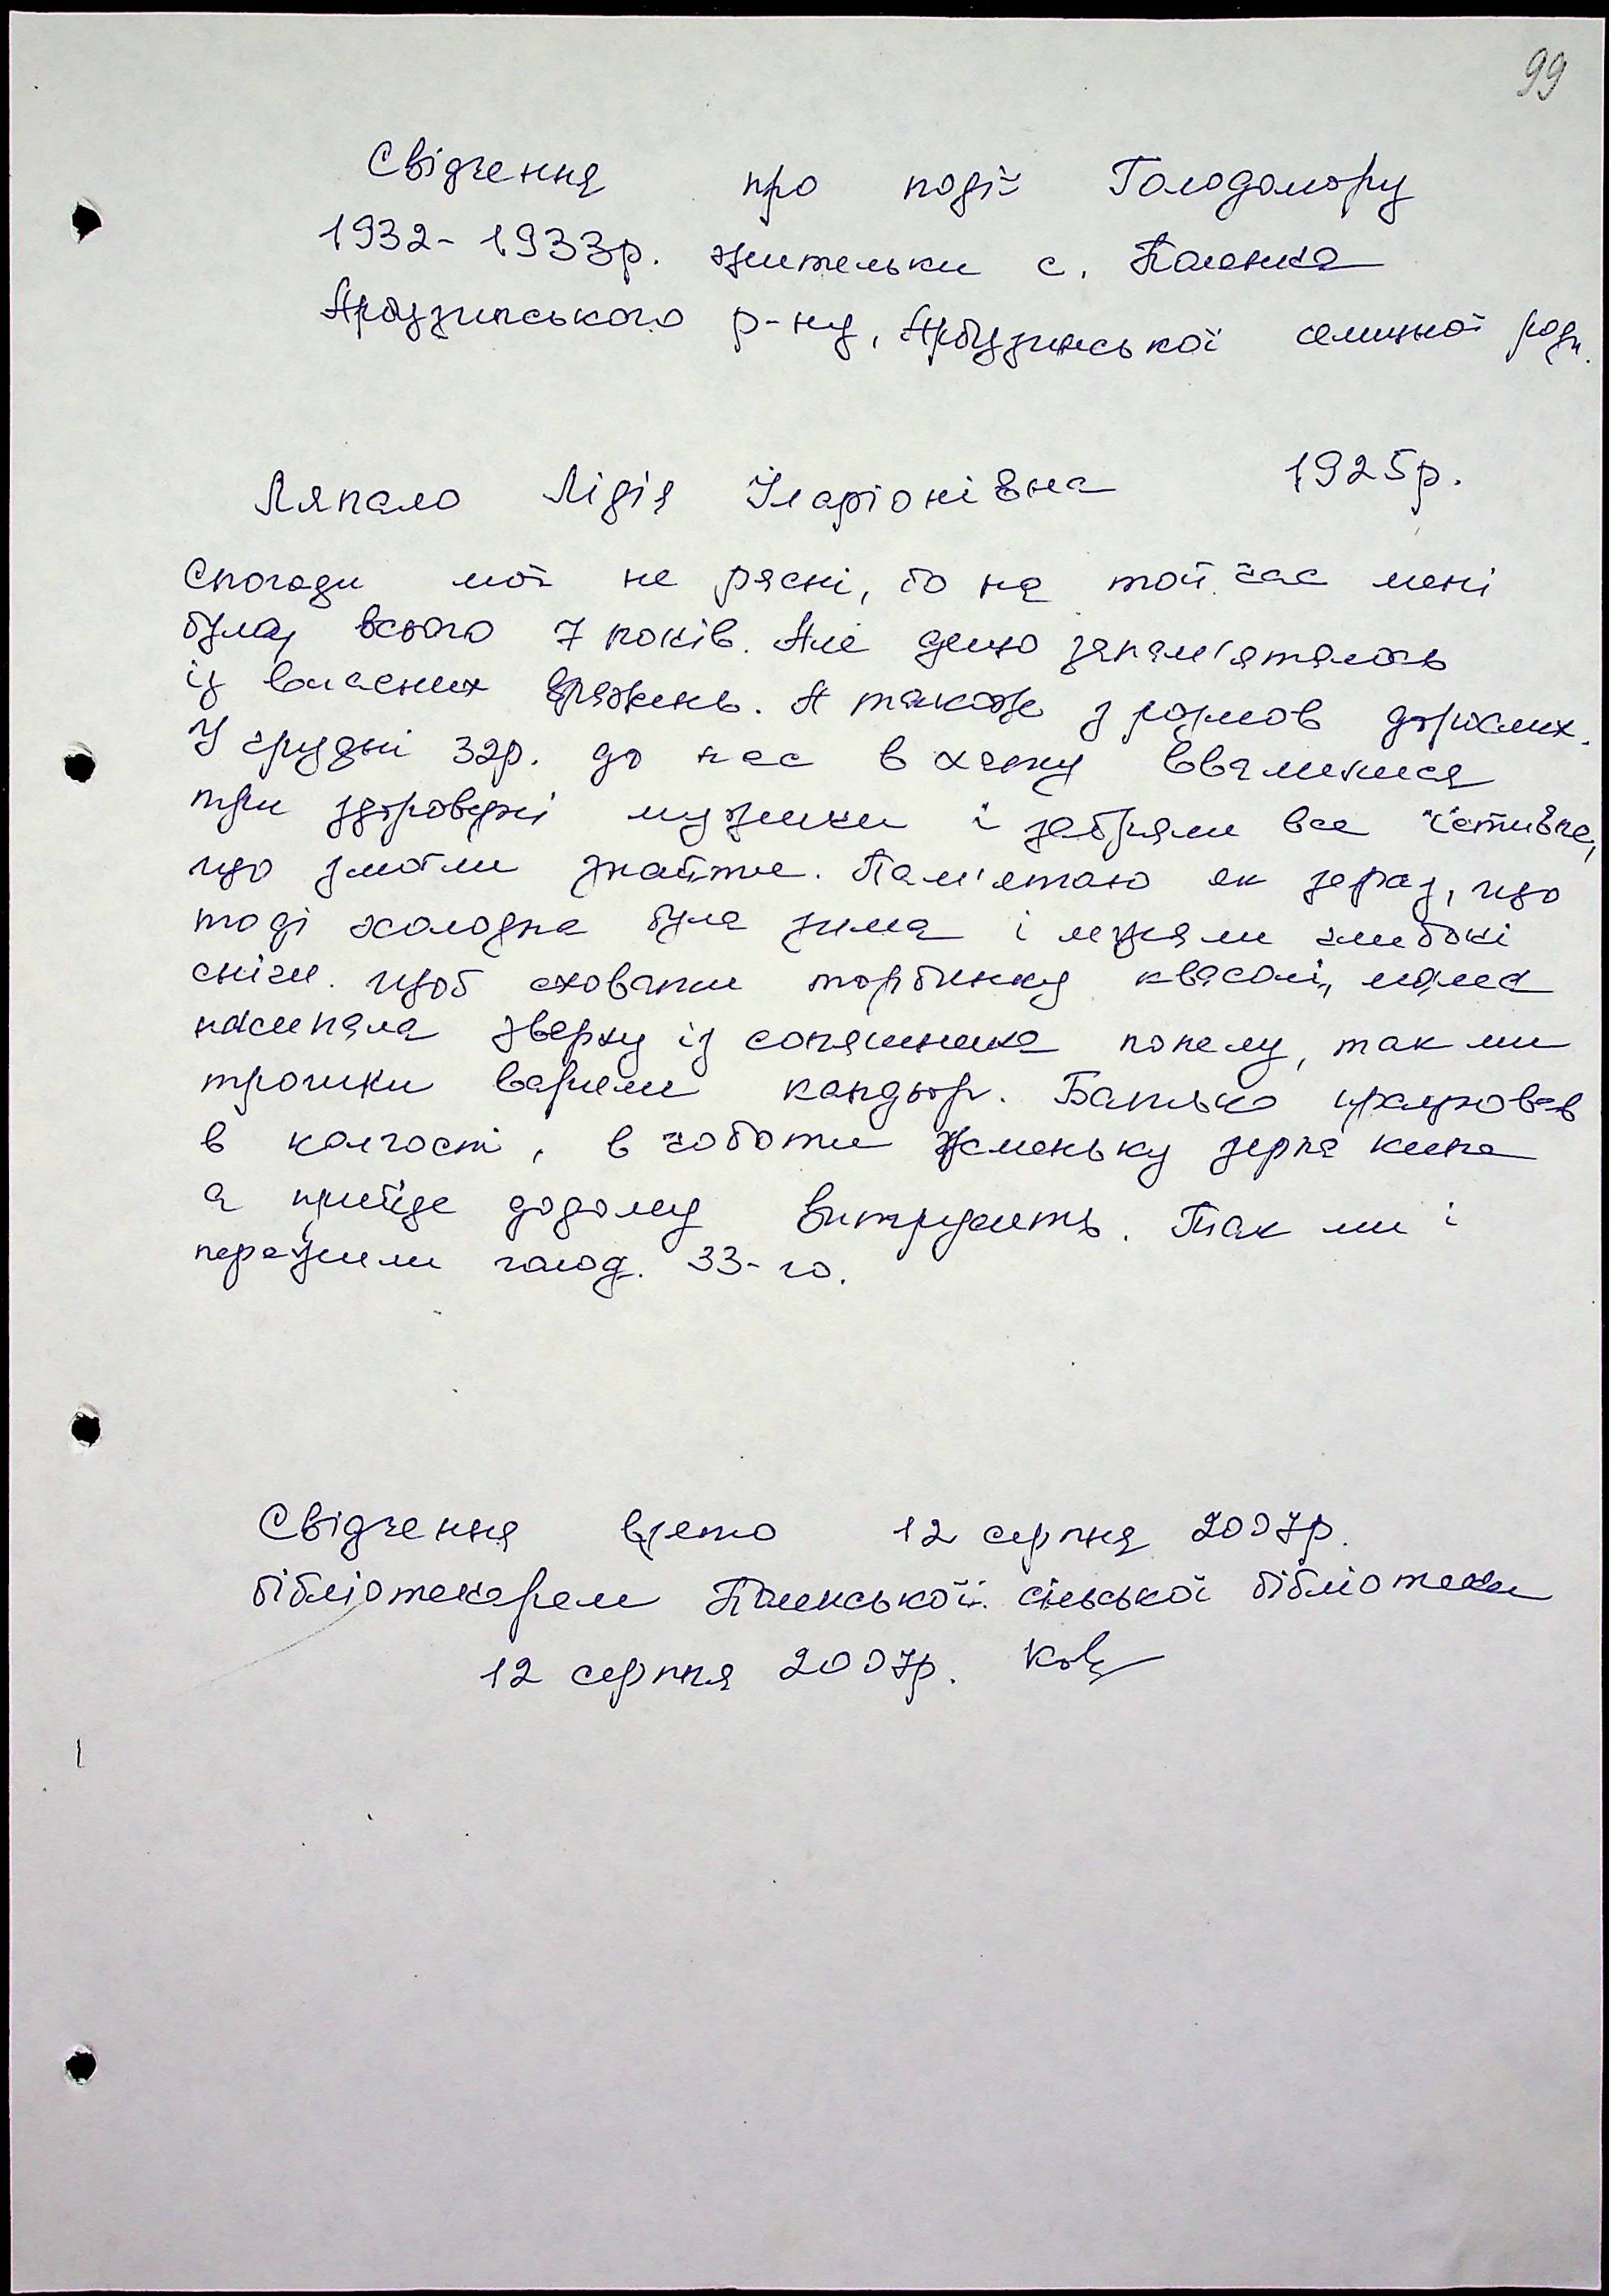 99
Свідчення про події Голодомору
1932-1933р. жительки с. Полянка
Арбузинського р-ну, Арбузинської селищної ради.
Ляпало Лідія Іларіонівна 1925р.
Спогади мої не рясні, бо на той час мені
було всього 7 років. Але дещо запам'яталось
із власних вражень. А також з розмов дорослих.
У грудні 32р. до нас в хатку ввалилися
три здоровезні мужики і забрали все їстивне,
що змогли знайти. Пам'ятаю як зараз, що
тоді холодна була зима і лежали глибокі
сніги. Щоб сховати торбинку квасолі, мама
насипала зверху із соняшника попелу, так ми
трошки варили кандьор. Батько працював
в колгоспі, в чоботи жменьку зерна кине
а прийде додому витрусить. Так ми і
пережили голод. 33-го.
Свідчення взято 12 серпня 2007р.
бібліотекарем сільської бібліотеки
12 серпня 2007р.